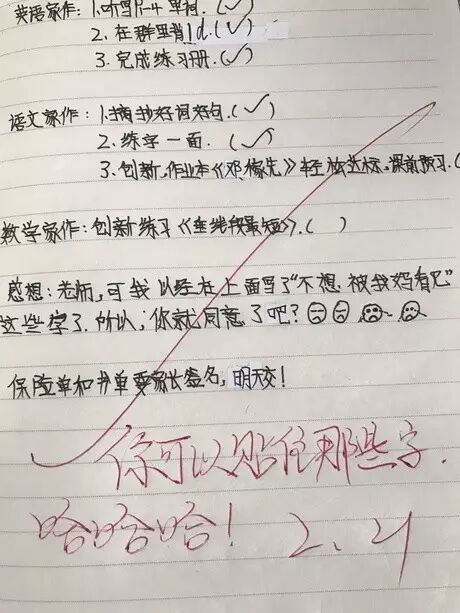 英语家作：1.听写1-4 单词.(✓)
2. 在群里背1d.(✓)
3. 完成练习册.(✓)
语文家作：1.摘抄好词好句.(✓)
2. 练字一面.(✓)
3. 创新作业本《邓稼先》轻松达标、课前预习.(
数学家作：创新练习《垂线段最短》.( )
感想：老师，可我以经在上面写了“不想被我妈看见”
这些字了.所以，你就同意了吧？
保险单和书单要家长签名，明天交！
你可以贴住那些字.
哈哈哈！ 2、21